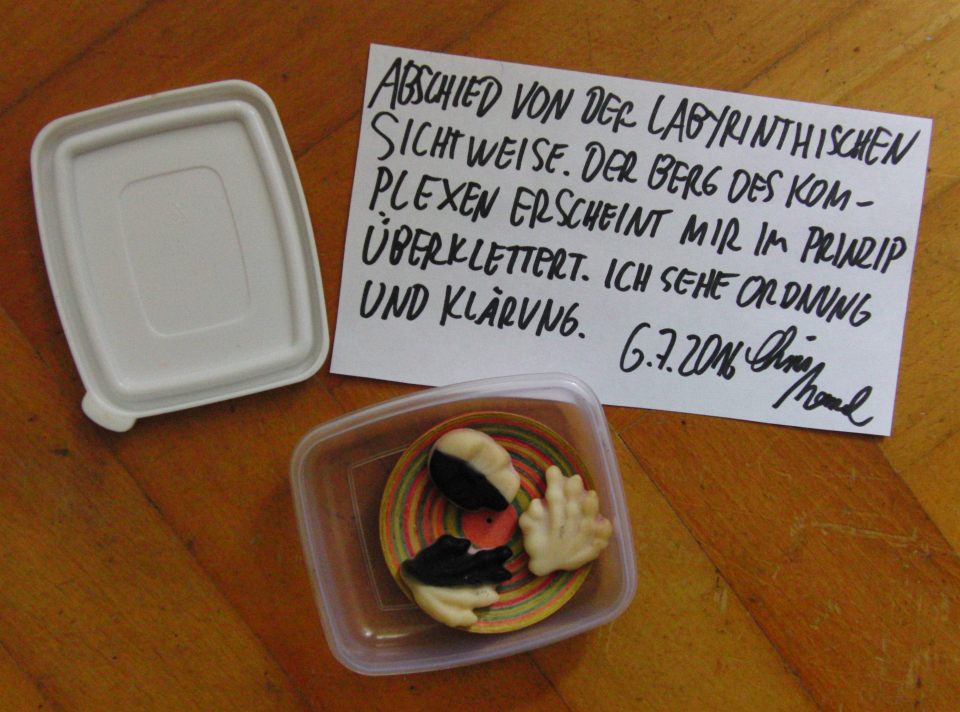 ABSCHIED VON DER LABYRINTHISCHEN
SICHTWEISE. DER BERG DES KOM-
PLEXEN ERSCHEINT MIR IM PRINZIP
ÜBERKLETTERT. ICH SEHE ORDNUNG
UND KLÄRUNG. 6.7.2016